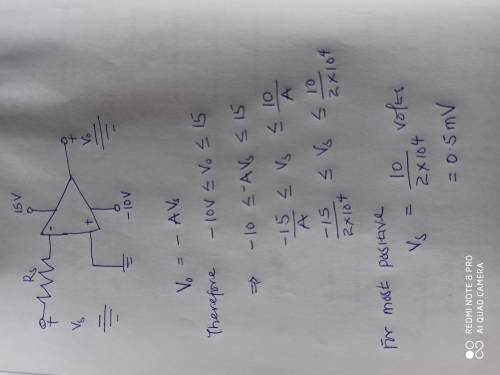 15V
Rs
-
+
+
+
Vs
Vo
-10V
Vo = - AVs
Therefore -10V ≤ Vo ≤ 15
⇒ -10 ≤ -AVs ≤ 15
-15/A ≤ Vs ≤ 10/A
-15/2×10⁴ ≤ Vs ≤ 10/2×10⁴
For most positive
Vs = 10/2×10⁴ volts
= 0.5mV
REDMI NOTE 8 PRO
AI QUAD CAMERA